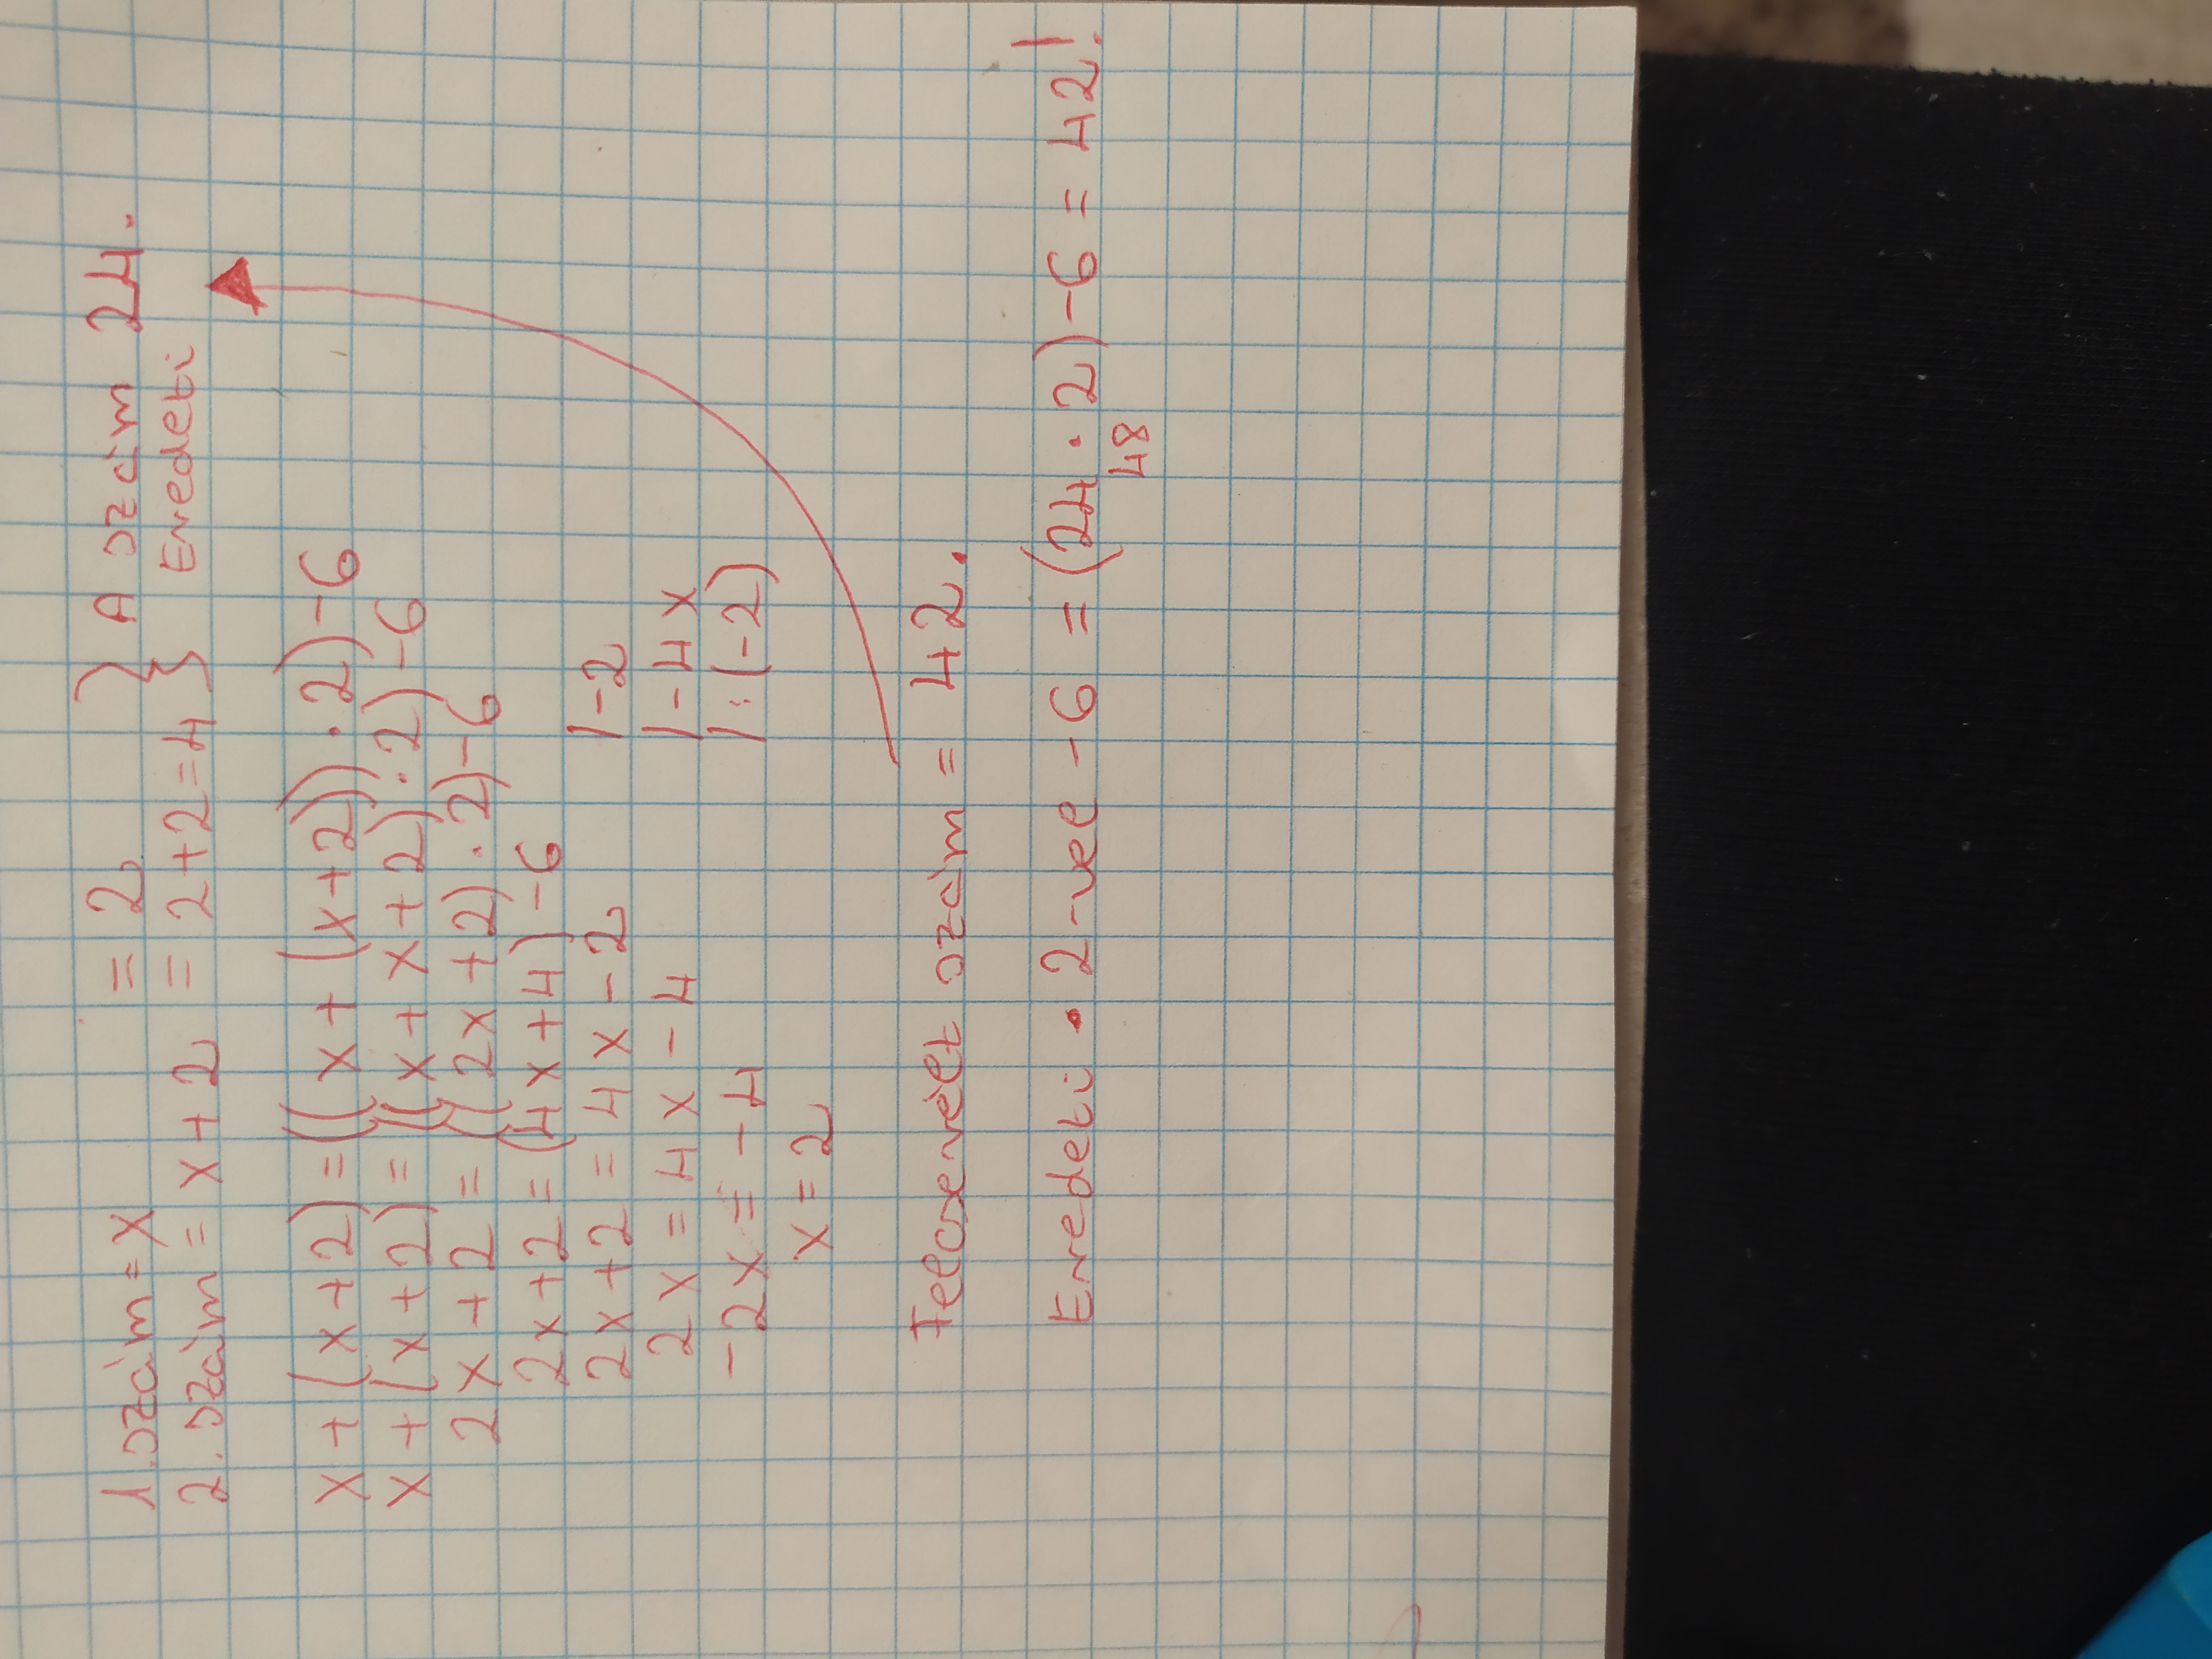 1.szám=x = 2 } A szám 24.
2.szám = x+2 = 2+2=4 } Eredeti
x+(x+2)=((x+(x+2))·2)-6
x+(x+2)=((x+x+2)·2)-6
2x+2=((2x+2)·2)-6
2x+2=(4x+4)-6
2x+2=4x-2 /-2
2x=4x-4 /-4x
-2x=-4 /:(-2)
x=2
Felcserélt szám = 42.
Eredeti · 2-vel -6 = (24·2)-6 = 42!
48